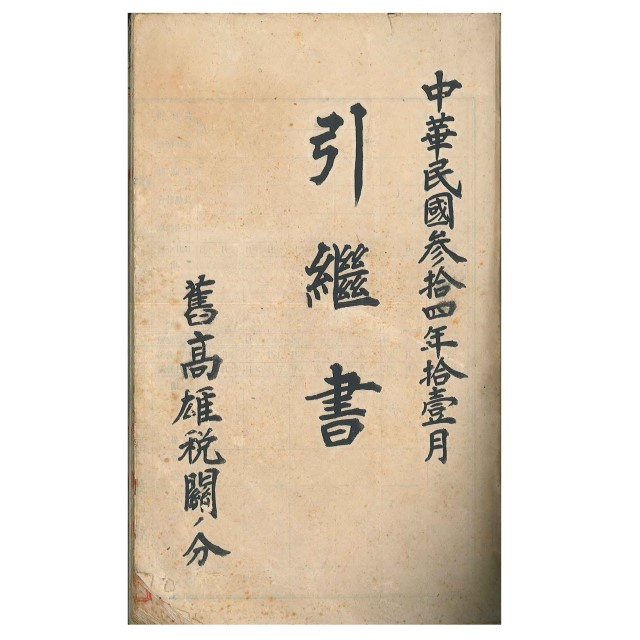 中華民國叁拾四年拾壹月
引繼書
舊高雄税關ノ分